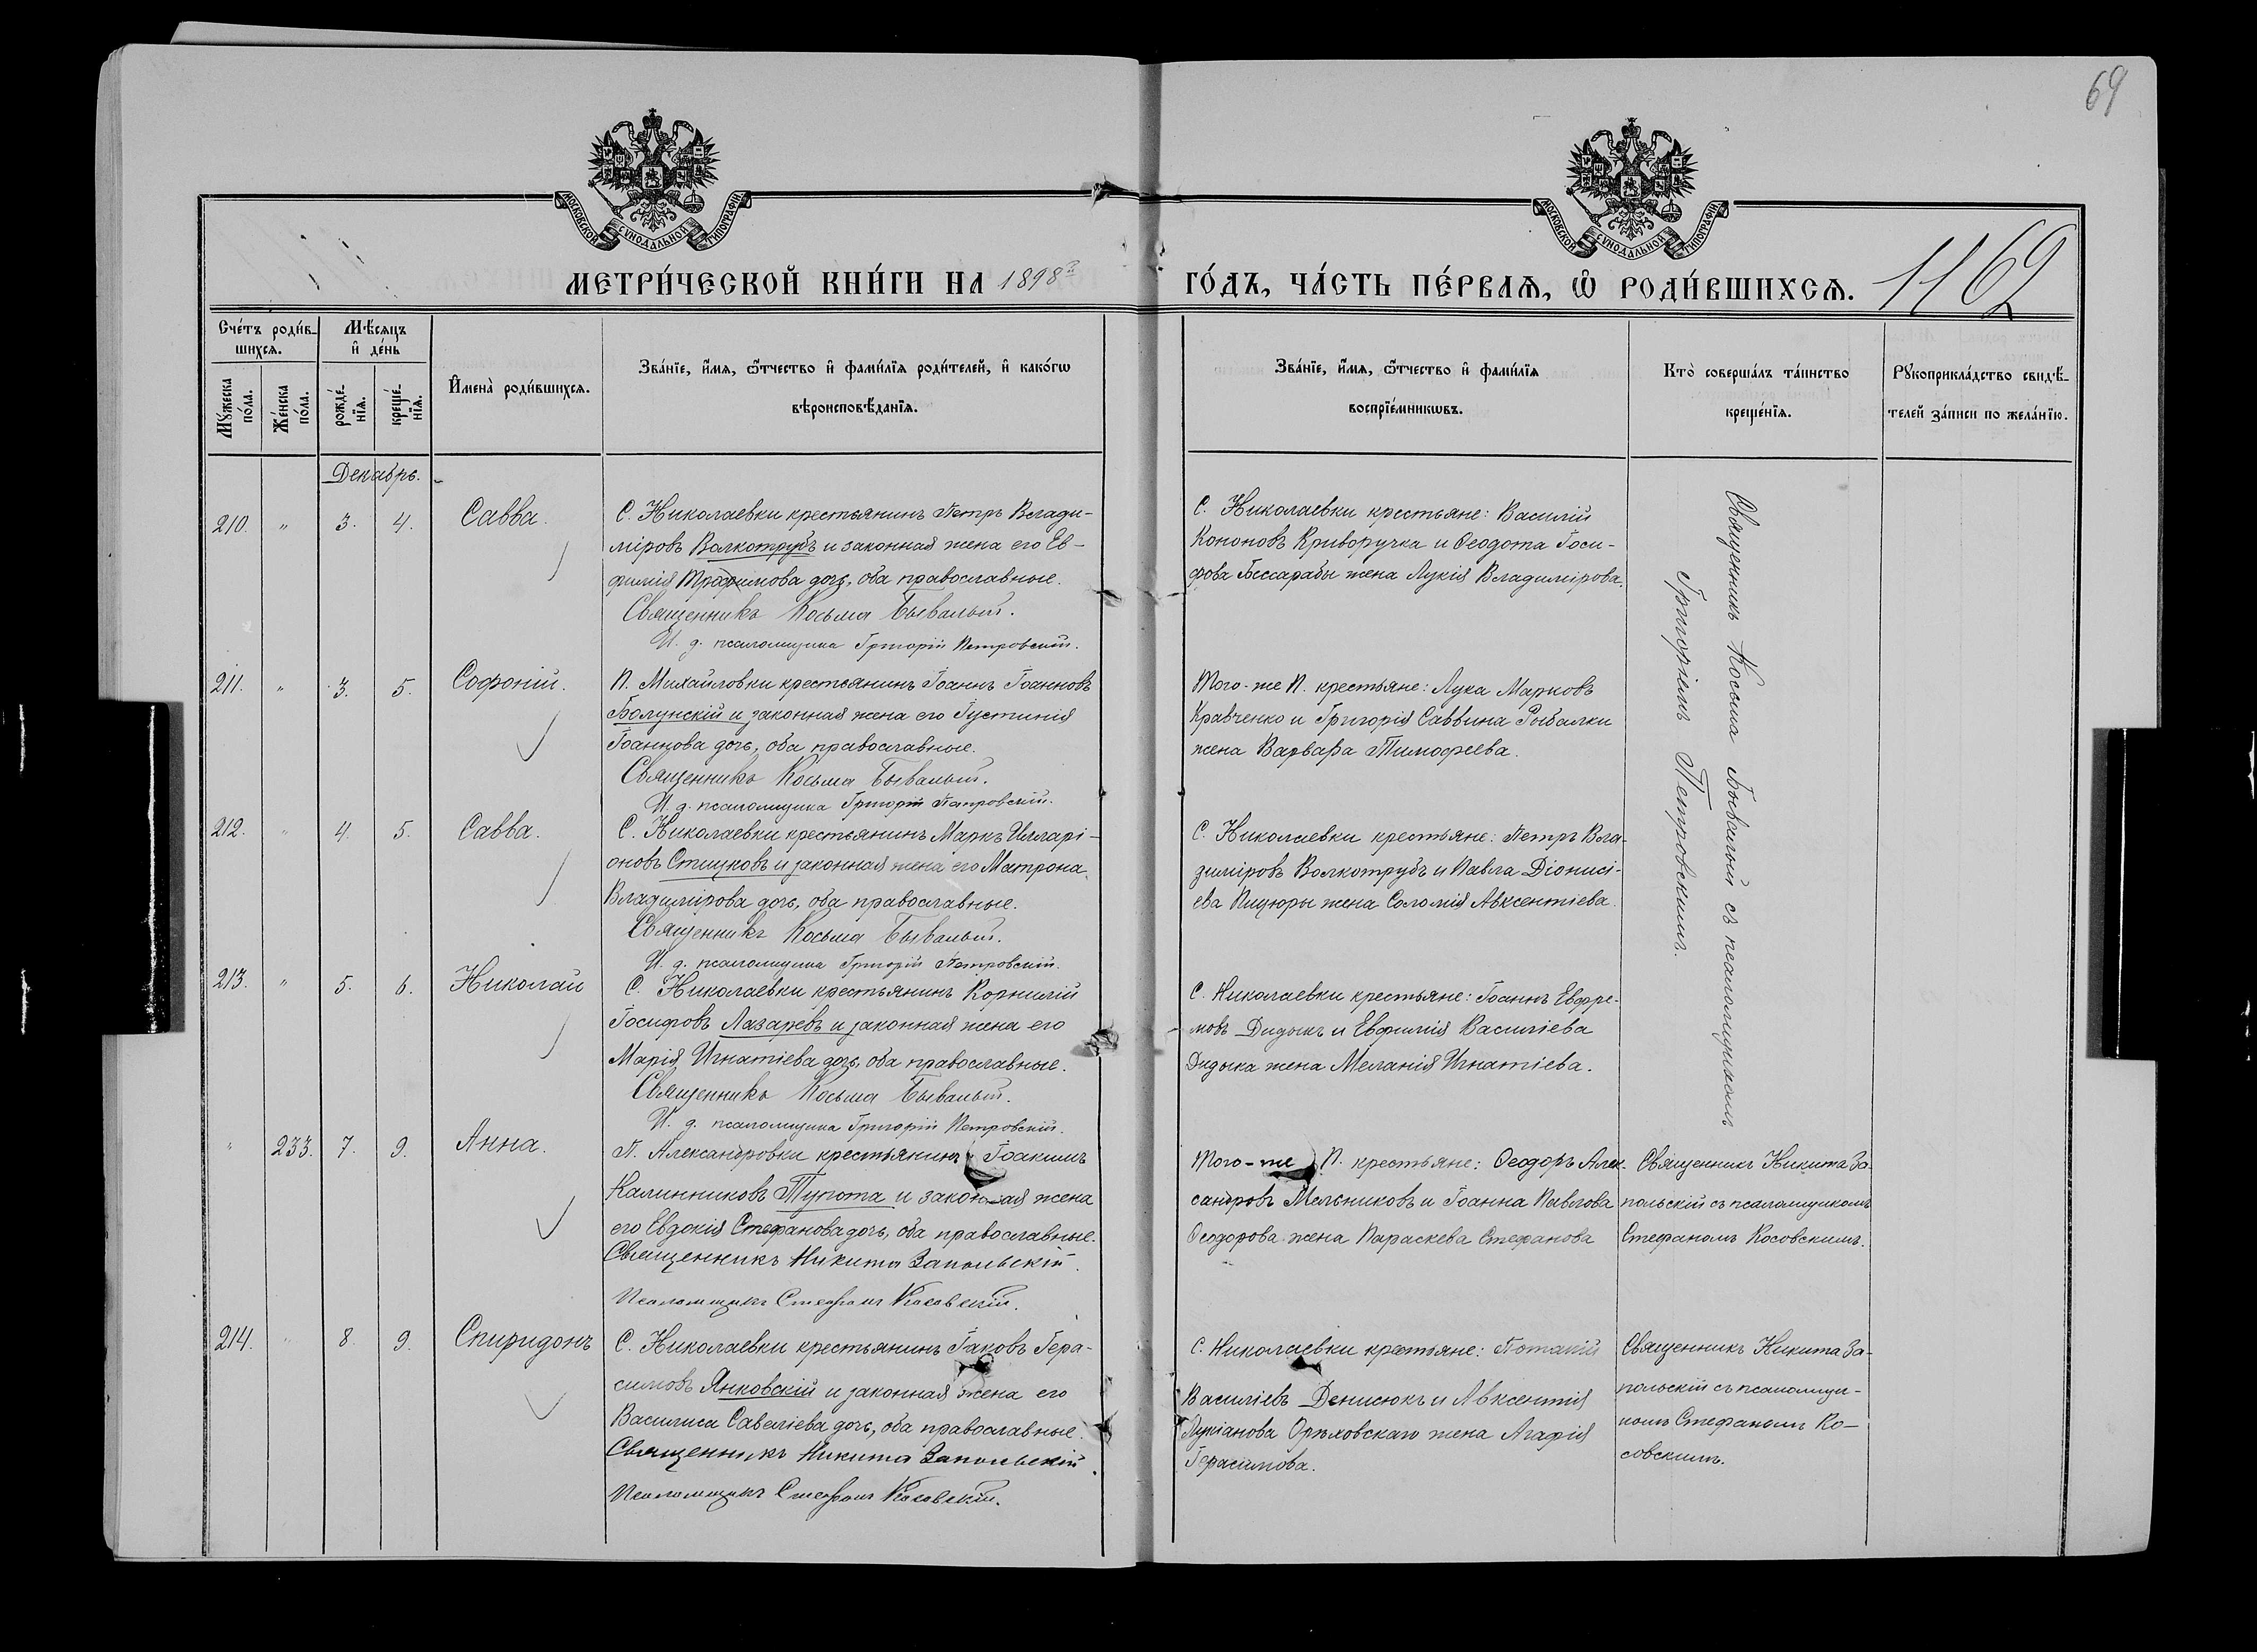 69
МОСКОВСКОЙ СѴНОДАЛЬНОЙ ТИПОГРАФІИ
МОСКОВСКОЙ СѴНОДАЛЬНОЙ ТИПОГРАФІИ
МЕТРИ́ЧЕСКОЙ КНИ́ГИ НА 1898й ГО́ДЪ, ЧА́СТЬ ПЕ́РВАѦ, Ѡ҆ РОДИ́ВШИХСѦ. 1169
Сче́тъ роди́в-
шихсѧ.
Мѣ́сѧцъ
и҆ де́нь
Мꙋ́жеска
по́ла.
Же́нска
по́ла.
рожде́-
нїѧ.
креще́-
нїѧ.
И҆мена̀ роди́вшихсѧ.
Зва́нїе, и҆́мѧ, ѻ҆́тчество и҆ фами́лїѧ роди́телей, и҆ како́гѡ
вѣроисповѣ́данїѧ.
Зва́нїе, и҆́мѧ, ѻ҆́тчество и҆ фами́лїѧ
воспрїе́мникѡвъ.
Кто̀ соверша́лъ та́инство
креще́нїѧ.
Рꙋкоприкла́дство свидѣ́-
телей за́писи по жела́нїю.
Декабрь.
210. " 3. 4. Савва.
С. Николаевки крестьянинъ Петръ Влади-
міровъ Волкотрубъ и законная жена его Ев-
фимія Трофимова дочь, оба православные.
Священникъ Косьма Бывалый.
И. д. псаломщика Григорій Петровскій.
С. Николаевки крестьяне: Василій
Кононовъ Криворучка и Ѳеодота Іоси-
фова Бессарабы жена Лукія Владимірова.
Священникъ Косьма Бывалый съ псаломщикомъ
Григоріемъ Петровскимъ.
211. " 3. 5. Софоній.
П. Михайловки крестьянинъ Іоаннъ Іоанновъ
Болунскій и законная жена его Іустинія
Іоаннова дочь, оба православные.
Священникъ Косьма Бывалый.
И. д. псаломщика Григорій Петровскій.
Того-же П. крестьяне: Лука Марковъ
Кравченко и Григорія Саввина Рыбалки
жена Варвара Тимофеева.
212. " 4. 5. Савва.
С. Николаевки крестьянинъ Маркъ Илларі-
оновъ Стецковъ и законная жена его Матрона
Владимірова дочь, оба православные.
Священникъ Косьма Бывалый.
И. д. псаломщика Григорій Петровскій.
С. Николаевки крестьяне: Петръ Вла-
диміровъ Волкотрубъ и Павла Діонисі-
ева Пицюры жена Соломія Авксентіева.
213. " 5. 6. Николай
С. Николаевки крестьянинъ Корнилій
Іосифовъ Лазаревъ и законная жена его
Марія Игнатіева дочь, оба православные.
Священникъ Косьма Бывалый.
И. д. псаломщика Григорій Петровскій.
С. Николаевки крестьяне: Іоаннъ Евфре-
мовъ Дидыкъ и Евфимія Василіева
Дидыка жена Меланія Игнатіева.
" 233. 7. 9. Анна.
П. Александровки крестьянинъ Іоакимъ
Калинниковъ Тупота и законная жена
его Евдокія Стефанова дочь, оба православные.
Священникъ Никита Запольскій.
Псаломщикъ Стефанъ Косовскій.
Того-же П. крестьяне: Ѳеодоръ Алек-
сандровъ Мельниковъ и Іоанна Павлова
Ѳеодорова жена Параскева Стефанова
Священникъ Никита За-
польскій съ псаломщикомъ
Стефаномъ Косовскимъ.
214. " 8. 9. Спиридонъ
С. Николаевки крестьянинъ Іаковъ Гера-
симовъ Янковскій и законная жена его
Василиса Савеліева дочь, оба православные.
Священникъ Никита Запольскій.
Псаломщикъ Стефанъ Косовскій.
С. Николаевки крестьяне: Потапій
Василіевъ Денисюкъ и Авксентія
Лукіанова Орѣховскаго жена Агафія
Герасимова.
Священникъ Никита За-
польскій съ псаломщи-
комъ Стефаномъ Ко-
совскимъ.